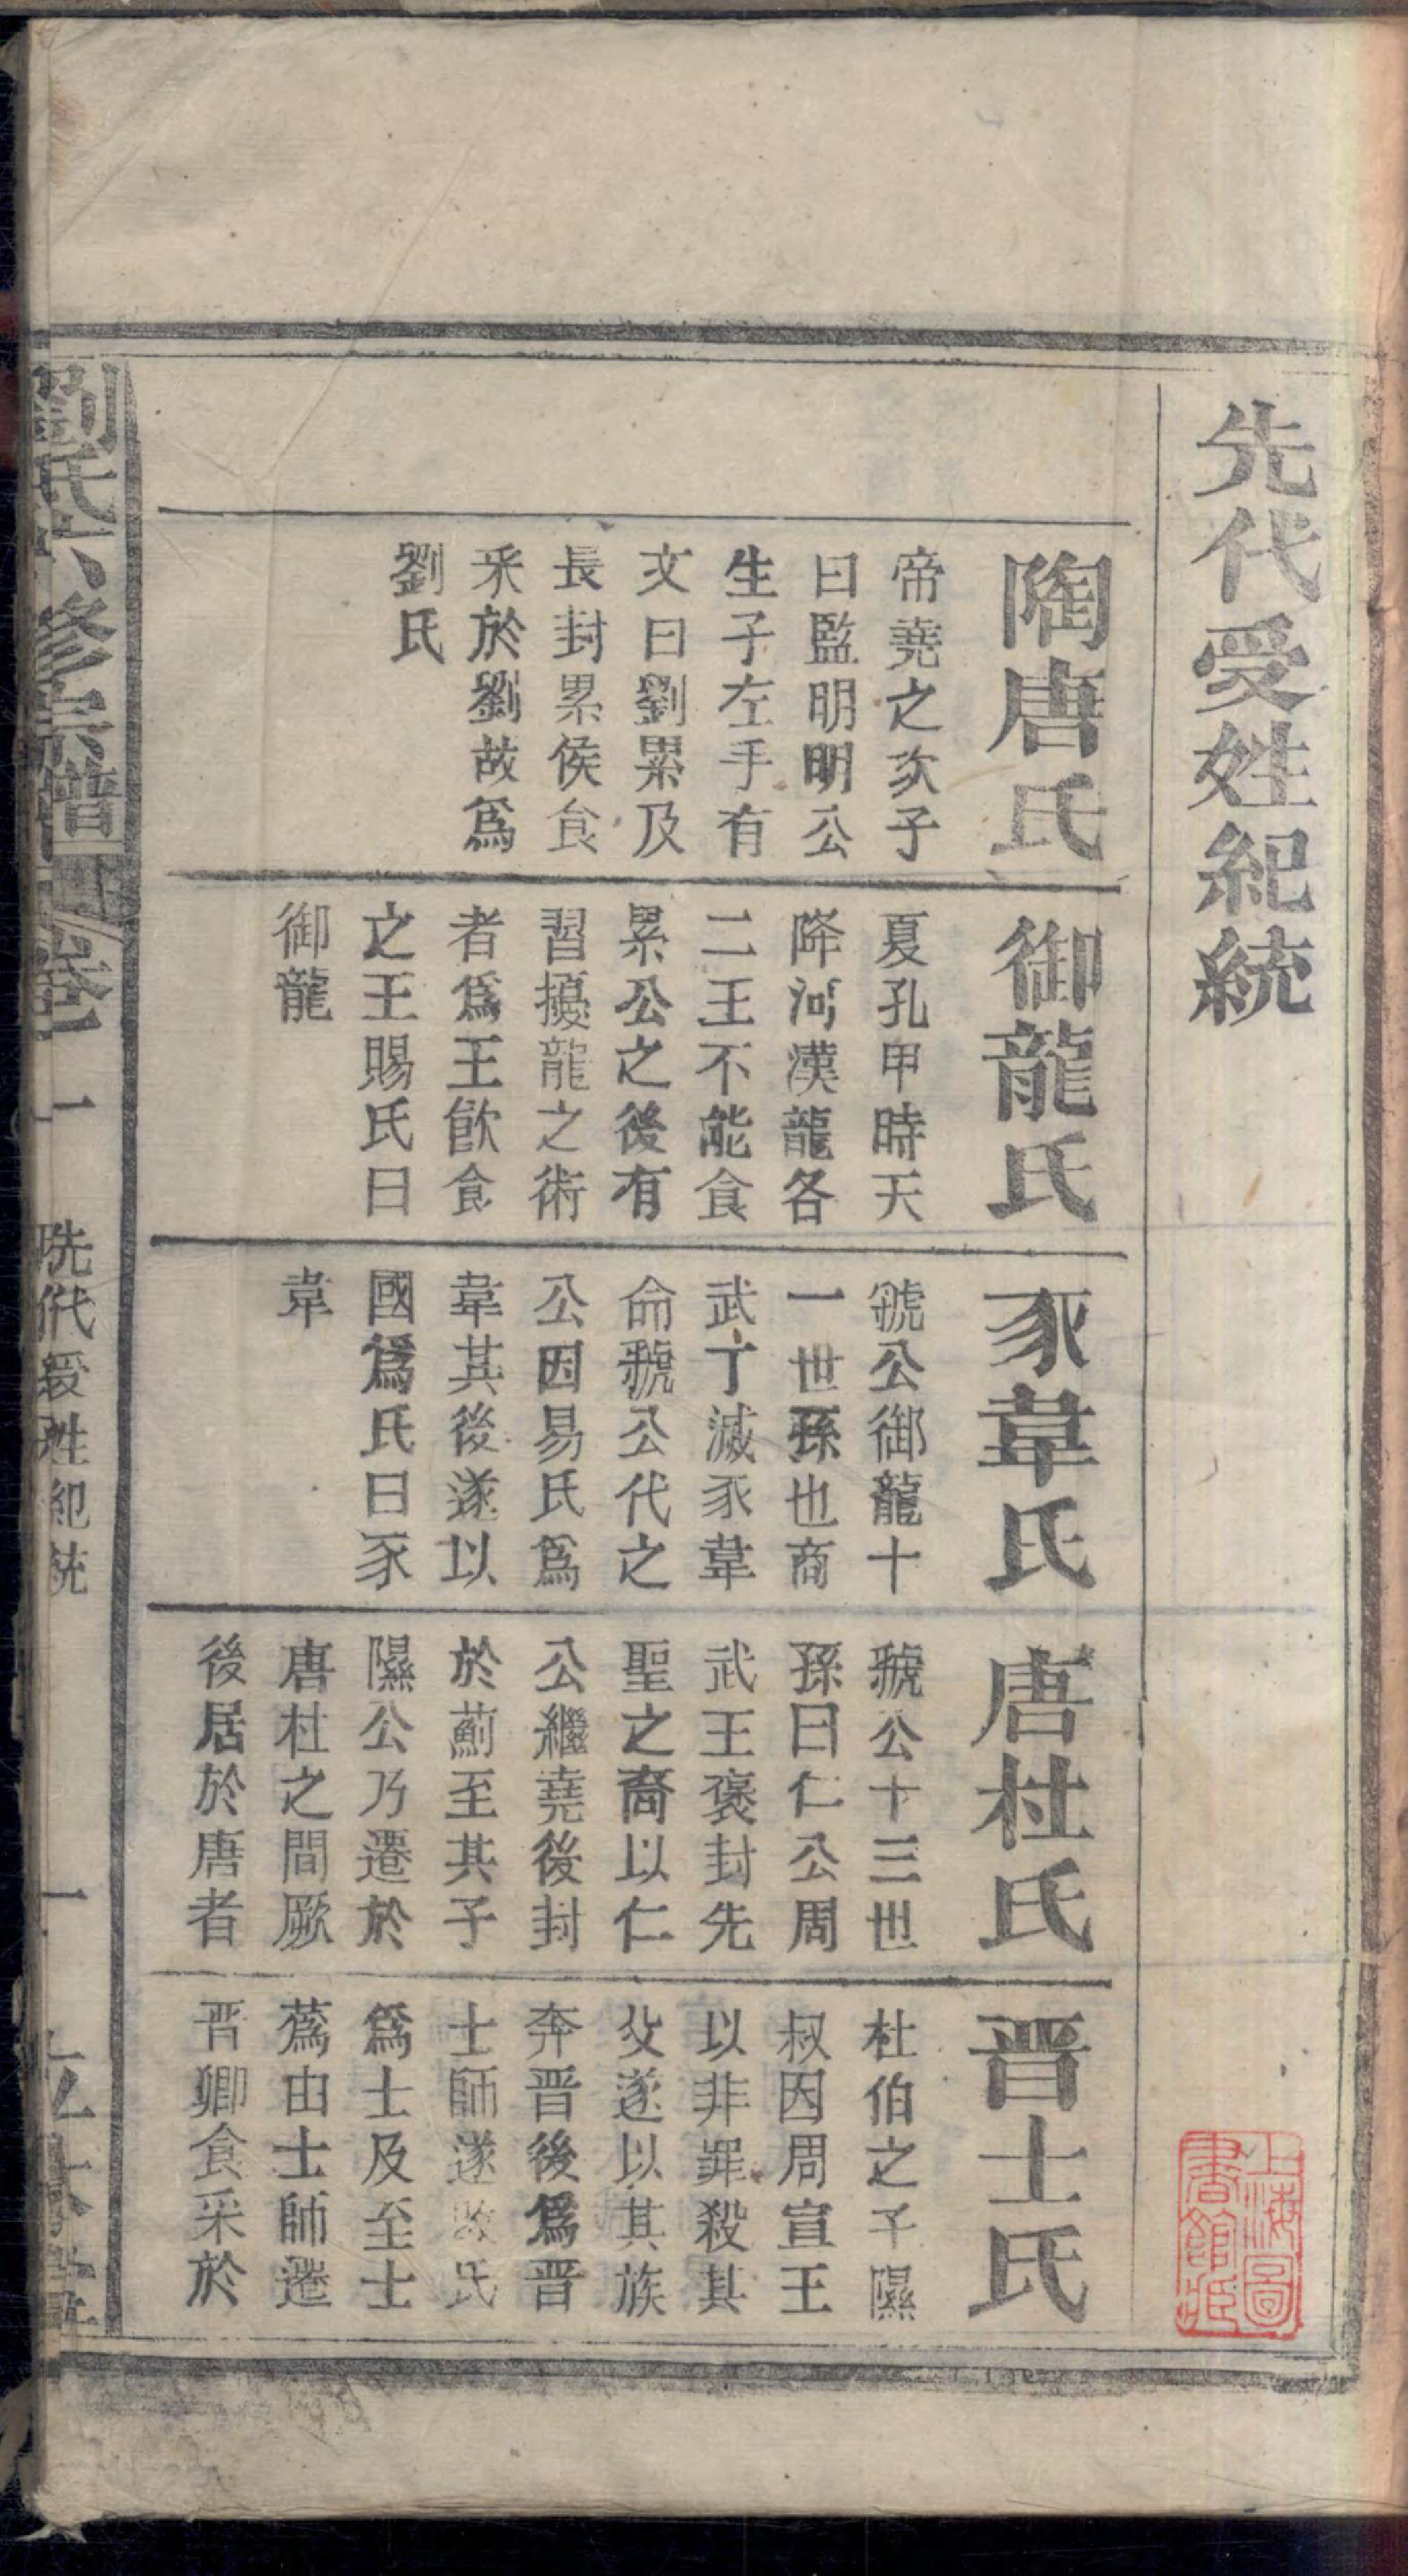 先代受姓紀統
陶唐氏
帝堯之次子
曰監明明公
生子左手有
文曰劉累及
長封累侯食
采於劉故爲
劉氏
御龍氏
夏孔甲時天
降河漢龍各
二王不能食
累公之後有
習擾龍之術
者爲王飮食
之王賜氏曰
御龍
豕韋氏
號公御龍十
一世孫也商
武丁滅豕韋
命號公代之
公因易氏爲
韋其後遂以
國爲氏曰豕
韋
唐杜氏
號公十三世
孫曰仁公周
武王褒封先
聖之裔以仁
公繼堯後封
於薊至其子
隰公乃遷於
唐杜之間厥
後居於唐者
晋士氏
杜伯之子隰
叔因周宣王
以非罪殺其
父遂以其族
奔晋後爲晋
士師遂氏
爲士及至士
蔿由士師遷
晋卿食采於
劉氏六修宗譜
卷一
先代受姓紀統
一
上海圖書館藏